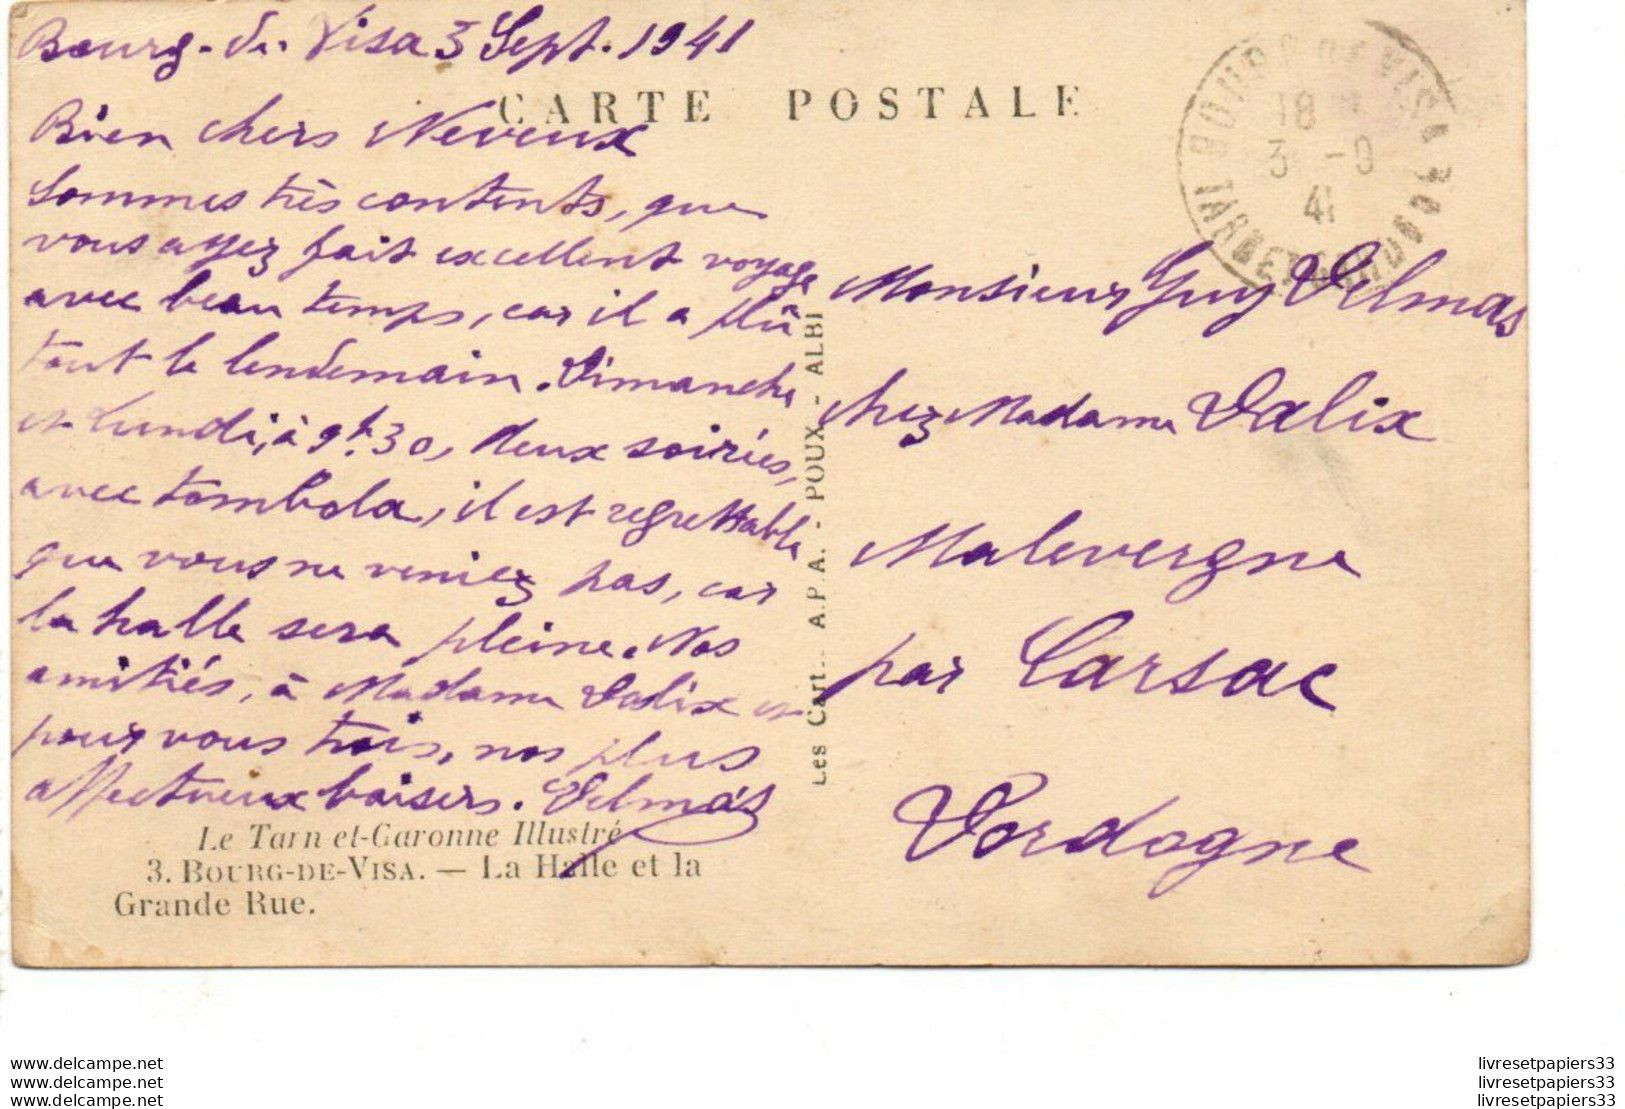 Bourg-de-Visa 3 Sept. 1941
CARTE POSTALE
Bien chers Neveux
Sommes très contents, que
vous ayez fait excellent voyage
avec beau temps, car il a plû
tout le lendemain. Dimanche
et Lundi, à 9h.30, deux soirées,
avec tombola, il est regrettable
que vous ne veniez pas, car
la halle sera pleine. Nos
amitiés, à Madame Valix et
pour vous trois, nos plus
affectueux baisers. Delmas
Le Tarn-et-Garonne Illustré
3. BOURG-DE-VISA. — La Halle et la
Grande Rue.
Les Cart... A.P.A. - POUX - ALBI
BOURG DE VISA
18
3 -9
41
TARN ET GARONNE
Monsieur Guy Delmas
chez Madame Valix
Malevergne
par Carsac
Dordogne
www.delcampe.net
www.delcampe.net
www.delcampe.net
livresetpapiers33
livresetpapiers33
livresetpapiers33